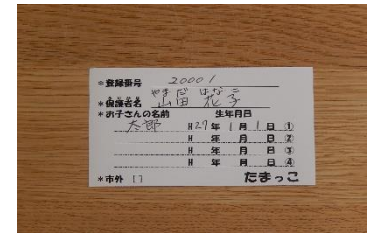 *登録番号 20001
やまだ はなこ
*保護者名 山田 花子
*お子さんの名前 生年月日
太郎 H27年1月1日①
H 年 月 日②
H 年 月 日③
H 年 月 日④
*市外 [ ] たまっこ